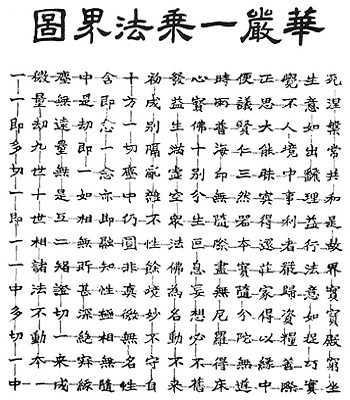 圖界法乘一嚴華
一微塵中含十初發心時便正覺生死
一量無是即方成益寶雨議思不意涅
即劫遠劫念一別生佛普賢大人如槃
多九量即一切隔滿十海仁能境出常
切世無一念塵亂虛別印三昧中繁共
一十是如亦中雜空分無然冥事理和
即世互相即仍不眾生隨器得利益是
一相二無融圓性法叵際本還者行故
一諸智所知非餘佛息盡寶莊嚴法界
中法證甚性真境為妄無隨家歸意實
多不切深極微妙名想尼分得資如寶
切動一絕相無不動必羅陀以糧捉殿
一本來寂無名守不不得無緣善巧窮
中一成緣隨性自來舊床道中際實坐